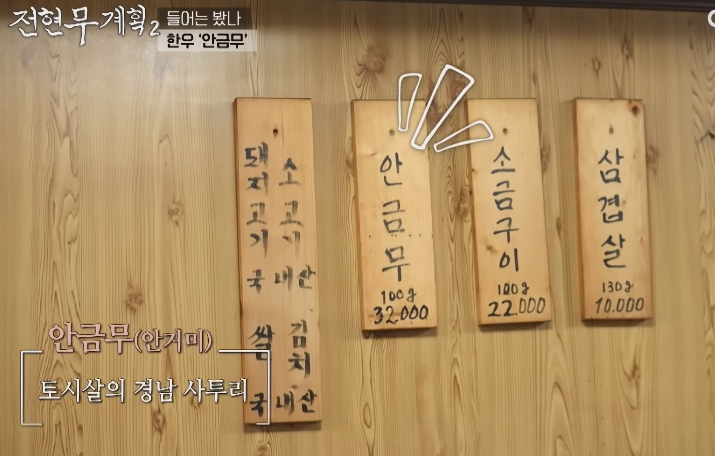 전현무계획2
들어는 봤나
한우 '안금무'
돼지고기 국
소고기 내산
쌀 국
김치 내산
안금무
100g
32.000
소금구이
100g
22.000
삼겹살
130g
10.000
안금무(안거미)
토시살의 경남 사투리